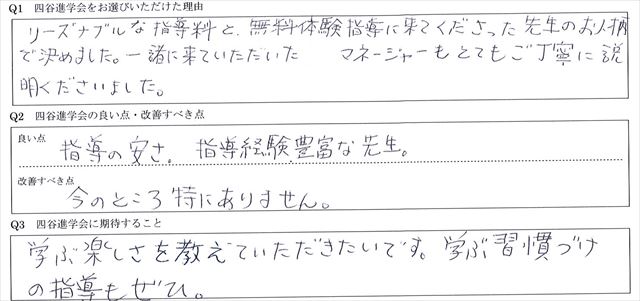 Q1 四谷進学会をお選びいただけた理由
リーズナブルな指導料と、無料体験指導に来てくださった先生のお人柄
で決めました。一緒に来ていただいた マネージャーもとてもご丁寧に説
明くださいました。
Q2 四谷進学会の良い点・改善すべき点
良い点
指導の安さ。指導経験豊富な先生。
改善すべき点
今のところ特にありません。
Q3 四谷進学会に期待すること
学ぶ楽しさを教えていただきたいです。学ぶ習慣づけ
の指導もぜひ。